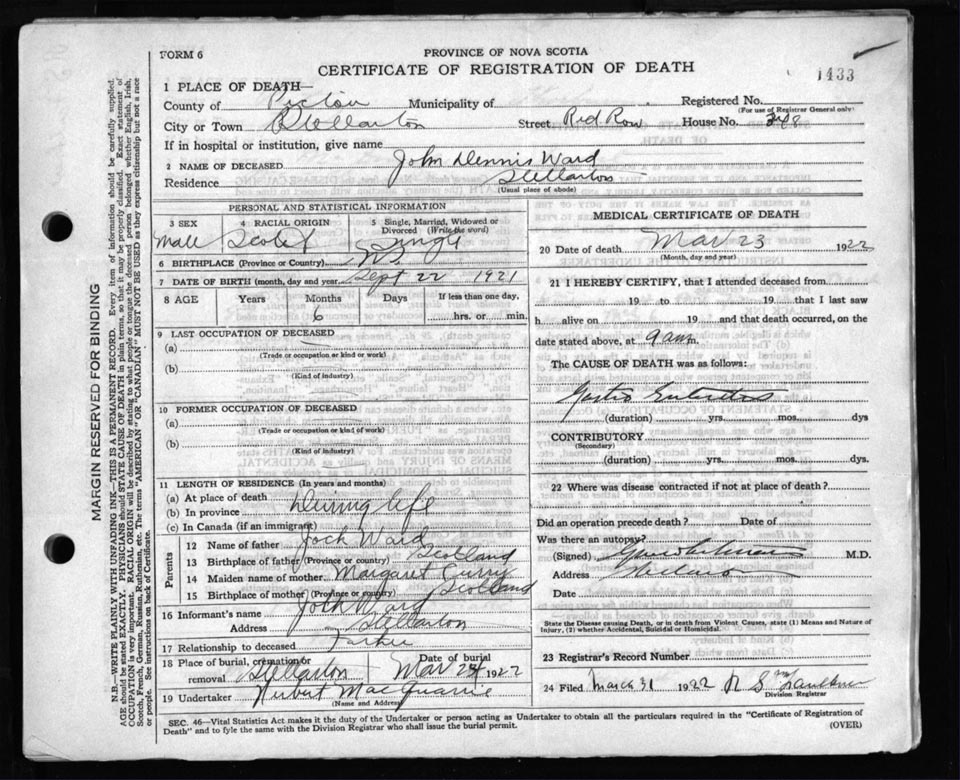 FORM 6
PROVINCE OF NOVA SCOTIA
CERTIFICATE OF REGISTRATION OF DEATH
1433
1 PLACE OF DEATH—
County of Pictou Municipality of Registered No.
(For use of Registrar General only)
City or Town Stellarton Street Red Row House No.
If in hospital or institution, give name
2 NAME OF DECEASED John Dennis Ward
Residence Stellarton
(Usual place of abode)
PERSONAL AND STATISTICAL INFORMATION
3 SEX 4 RACIAL ORIGIN 5 Single, Married, Widowed or Divorced (Write the word)
Male Scotch Single
6 BIRTHPLACE (Province or Country) NS
7 DATE OF BIRTH (month, day and year) Sept 22 1921
8 AGE Years Months Days If less than one day.
6 hrs. or min.
9 LAST OCCUPATION OF DECEASED
(a)
(Trade or occupation or kind or work)
(b)
(Kind of Industry)
10 FORMER OCCUPATION OF DECEASED
(a)
(Trade or occupation or kind of work)
(b)
(Kind of Industry)
11 LENGTH OF RESIDENCE (In years and months)
(a) At place of death
(b) In province During life
(c) In Canada (if an immigrant)
Parents
12 Name of father Jock Ward
13 Birthplace of father (Province or country) Scotland
14 Maiden name of mother Margaret Curry
15 Birthplace of mother (Province or country) Scotland
16 Informant's name Jock Ward
Address Stellarton
17 Relationship to deceased Father
18 Place of burial, cremation or removal Stellarton Date of burial Mar 24 1922
19 Undertaker Hubert MacQuarrie
(Name and Address)
MEDICAL CERTIFICATE OF DEATH
20 Date of death Mar 23 1922
(Month, day and year)
21 I HEREBY CERTIFY, that I attended deceased from
19 to 19 that I last saw
h alive on 19 and that death occurred, on
date stated above, at 9 am m.
The CAUSE OF DEATH was as follows:
Gastro Enteritis
(duration) yrs. mos. dys
CONTRIBUTORY
(Secondary)
(duration) yrs. mos. dys
22 Where was disease contracted if not at place of death?
Did an operation precede death? Date of
Was there an autopsy?
(Signed) M.D.
Address
Date
State the Disease causing Death, or in death from Violent Causes, state (1) Means and Nature of Injury, (2) whether Accidental, Suicidal or Homicidal.
23 Registrar's Record Number
24 Filed March 31 1922 R S Faulkner
Division Registrar
SEC. 46—Vital Statistics Act makes it the duty of the Undertaker or person acting as Undertaker to obtain all the particulars required in the "Certificate of Registration of
Death" and to fyle the same with the Division Registrar who shall issue the burial permit.
(OVER)
MARGIN RESERVED FOR BINDING
N.B.—WRITE PLAINLY WITH UNFADING INK—THIS IS A PERMANENT RECORD. Every item of information should be carefully supplied.
AGE should be stated EXACTLY. PHYSICIANS should STATE CAUSE OF DEATH in plain terms, so that it may be properly classified. Exact statement of
OCCUPATION is very important. RACIAL ORIGIN will be described by stating to what people or tongue the deceased person belonged whether English, Irish,
Scotch, French, German, Russian, Ruthenian, etc. The terms "AMERICAN" OR "CANADIAN" MUST NOT BE USED as they express citizenship but not a race
or people. See instructions on back of Certificate.